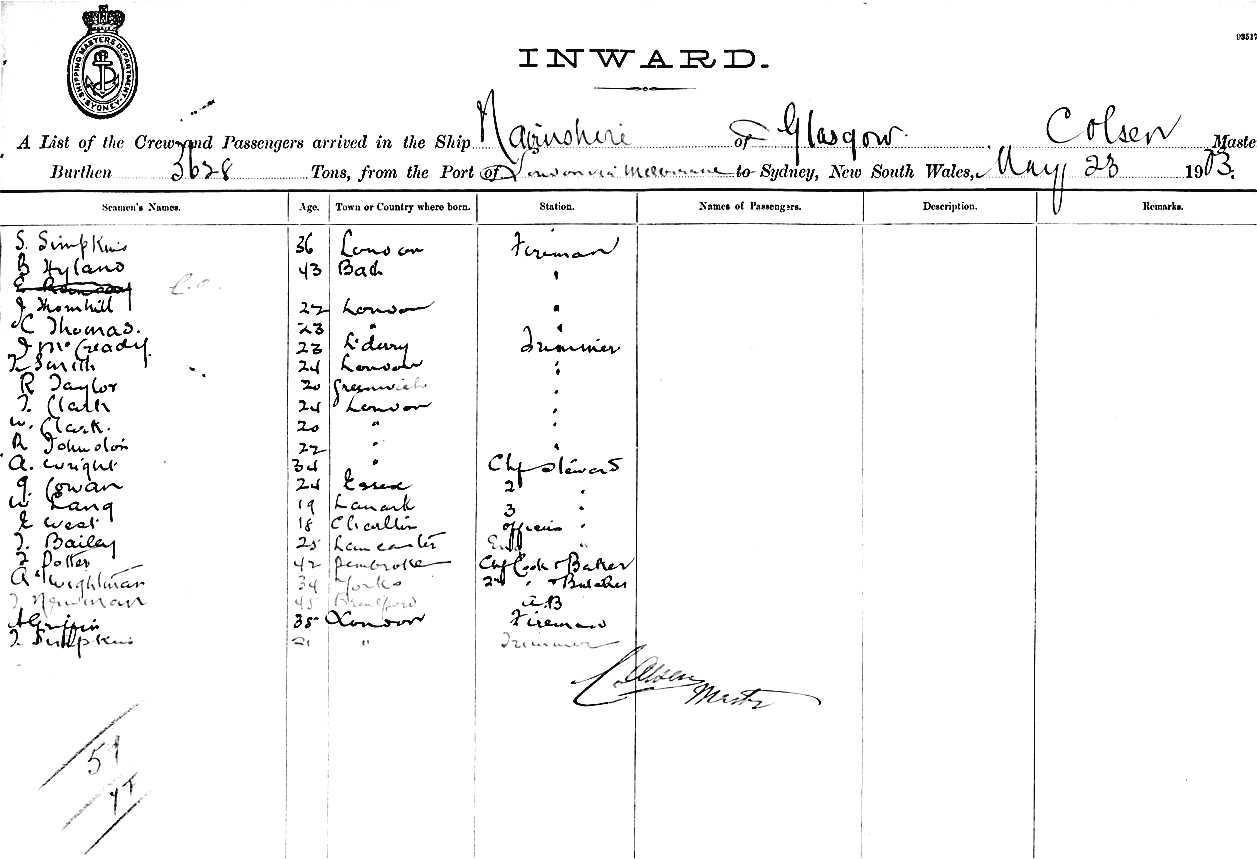 SHIPPING MASTERS DEPARTMENT SYDNEY
INWARD.
A List of the Crew and Passengers arrived in the Ship Nairnshire of Glasgow. Colsen Maste
Burthen 3628 Tons, from the Port of London via Melbourne to Sydney, New South Wales, May 23 1903.
Seamen's Names. Age. Town or Country where born. Station. Names of Passengers. Description. Remarks.
S. Simpkins 36 London Fireman
B Hyland 43 "
J Thornhill 22 London "
C Thomas. 23 " "
J McCready. 23 L'derry Trimmer
Smith 24 London "
R Taylor 20 Greenwich "
T. Clark 24 London "
W. Clark. 20 " "
R Johnston 22 " "
A. Wright 34 " Chf Steward
G. Cowan 24 Essex 2 "
W Lang 19 Lanark 3 "
E West 18 Charlton officers "
T. Bailey 25 Lancaster Eng "
Potter 42 Pembroke Chf Cook & Baker
A Wightman 34 Yorks 2nd " & Butcher
T Newman 45 Brentford A.B
A Griffin 35 London Fireman
T. Simpkins 21 " Trimmer
C. Colsen
Master
59